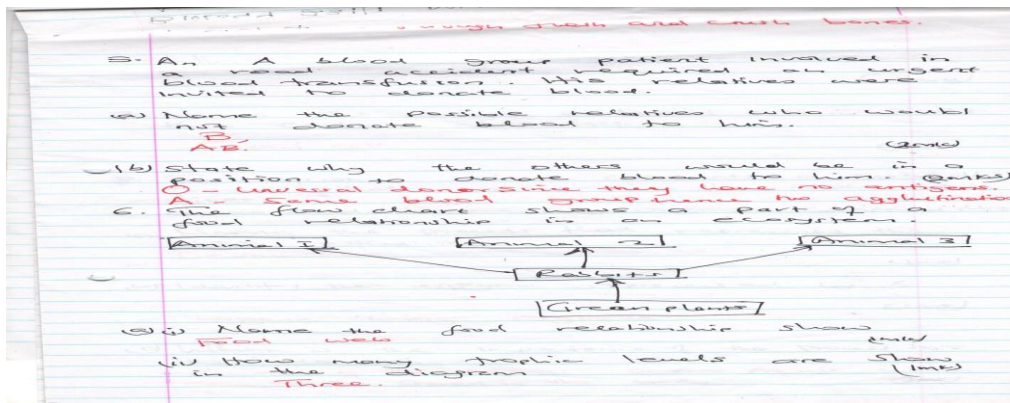 through flesh and crush bones.
5. An A blood group patient involved in
a road accident required an urgent
blood transfusion. His relatives were
invited to donate blood.
(a) Name the possible relatives who would
not donate blood to him.
B,
AB.
(2mks)
(b) State why the others would be in a
position to donate blood to him. (2mks)
O - Univeral donor since they have no antigens.
A - Same blood group hence no agglutination
6. The flow chart shows a part of a
food relationship in an ecosystem
Animal 1 Animal 2 Animal 3
Rabbits
Green plants
(a) (i) Name the food relationship show
Food web
(ii) How many trophic levels are show
in the diagram (1mk)
Three.